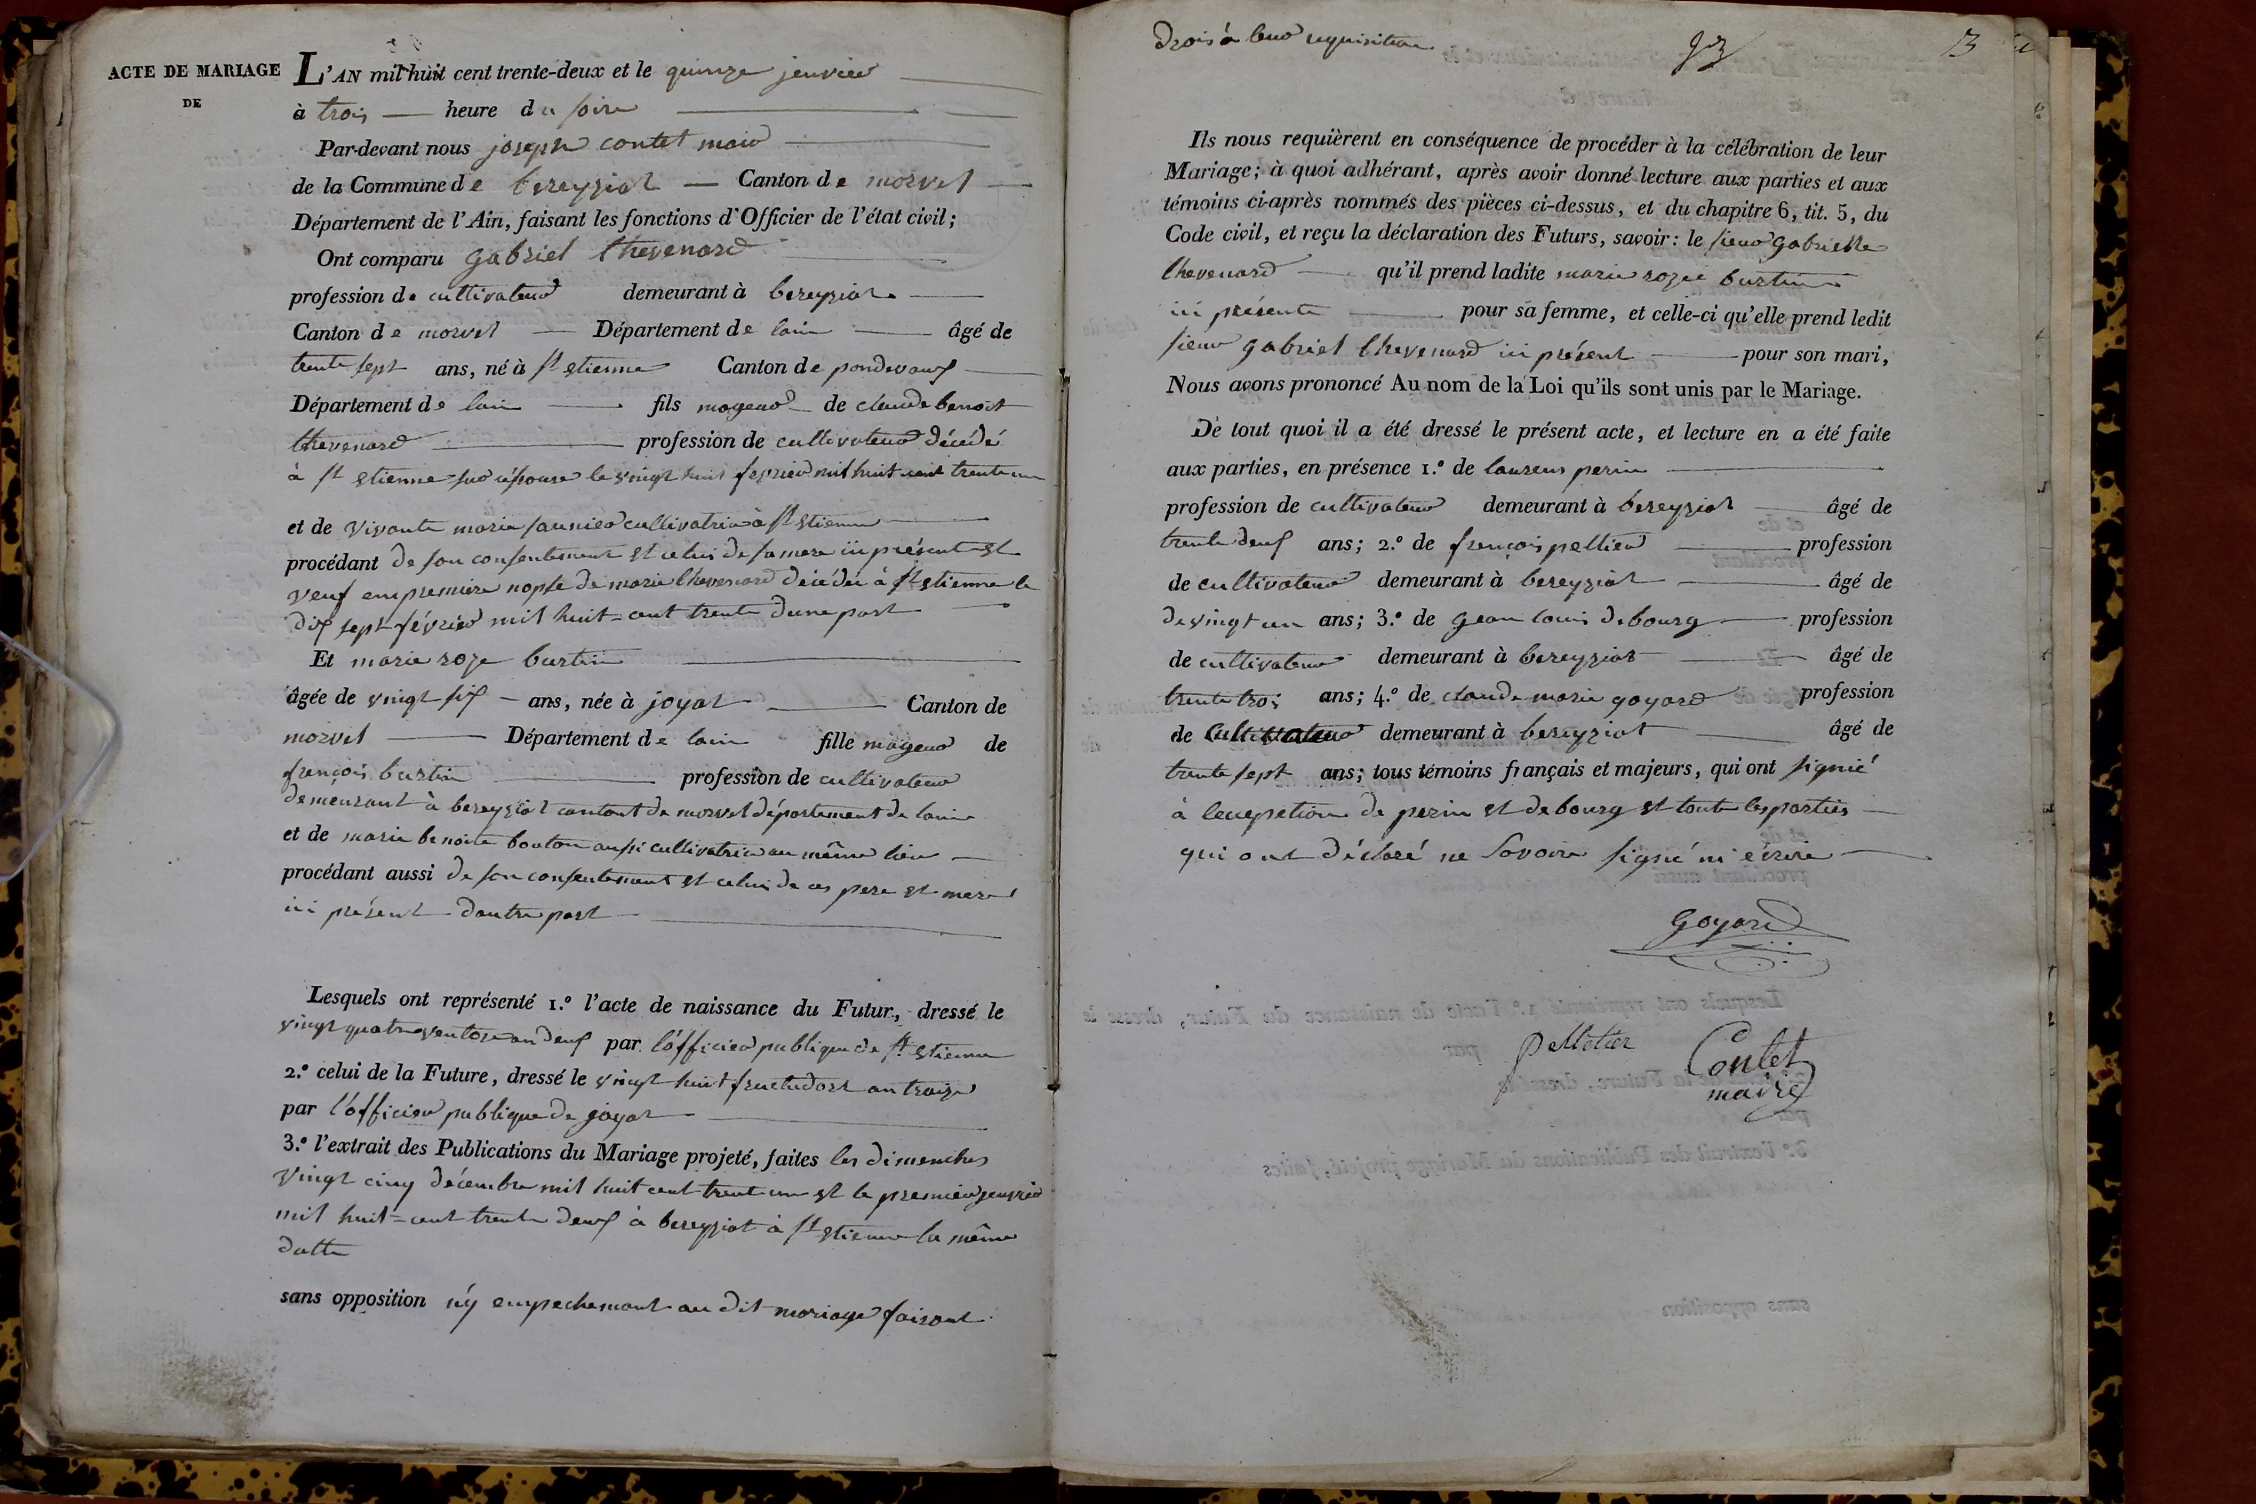 ACTE DE MARIAGE
DE
L'AN mil huit cent trente-deux et le quinze jenvier
à trois heure du soire
Par-devant nous joseph contet maire
de la Commune de bereyziat Canton de morvel
Département de l'Ain, faisant les fonctions d'Officier de l'état civil;
Ont comparu gabriel thevenard
profession de cultivateur demeurant à bereyziat
Canton de morvel Département de lain âgé de
trente sept ans, né à st etienne Canton de pondevaux
Département de lain fils mageur de claude benoit
thevenard profession de cultivateur décédé
à st etienne sur résouse le vingt huit fevrier mil huit cent trente un
et de vivante marie saunier cultivatrice à st etienne
procédant de son consentement et celui de sa mere ici présente et
veuf en premiere nopse de marie thevenard décédée à st etienne le
dix sept février mil huit-cent trente dune part
Et marie roze burtin
âgée de vingt six ans, née à joyat Canton de
morvel Département de lain fille mageur de
françois burtin profession de cultivateur
demeurant à bereyziat cantont de morvel département de lain
et de marie benoite bouton aussi cultivatrice au même lieu
procédant aussi de son consentement et celui de ces pere et mere
ici présent dautre part
Lesquels ont représenté 1.º l'acte de naissance du Futur, dressé le
vingt quatre ventose an deux par l'officier publique de st etienne
2.º celui de la Future, dressé le vingt huit fructudort an traize
par l'officier publique de joyat
3.º l'extrait des Publications du Mariage projeté, faites les dimenches
vingt cinq décembre mil huit cent trent un et le premier jenvier
mil huit-cent trente deux à bereyziat à st etienne la même
datte
sans opposition n'y empechemant au dit mariage faisant
drois á leur requisition
93
13
Ils nous requièrent en conséquence de procéder à la célébration de leur
Mariage; à quoi adhérant, après avoir donné lecture aux parties et aux
témoins ci-après nommés des pièces ci-dessus, et du chapitre 6, tit. 5, du
Code civil, et reçu la déclaration des Futurs, savoir: le sieur gabrielle
thevenard qu'il prend ladite marie rozee burtin
ici présente pour sa femme, et celle-ci qu'elle prend ledit
sieur gabriel thevenard ici présent pour son mari,
Nous avons prononcé Au nom de la Loi qu'ils sont unis par le Mariage.
De tout quoi il a été dressé le présent acte, et lecture en a été faite
aux parties, en présence 1.º de laurens perin
profession de cultivateur demeurant à bereyziat âgé de
trente deux ans; 2.º de françois pellier profession
de cultivateur demeurant à bereyziat âgé de
de vingt un ans; 3.º de gean louis debourg profession
de cultivateur demeurant à bereyziat âgé de
trente trois ans; 4.º de claude marie goyard profession
de Cultivateur demeurant à bereyziat âgé de
trente sept ans; tous témoins français et majeurs, qui ont signié
à lecxeption de perin et debourg et toute les parties
qui ont déclaré ne savoire signié ni ecrire
Goyard
pelletier
Contet
maire